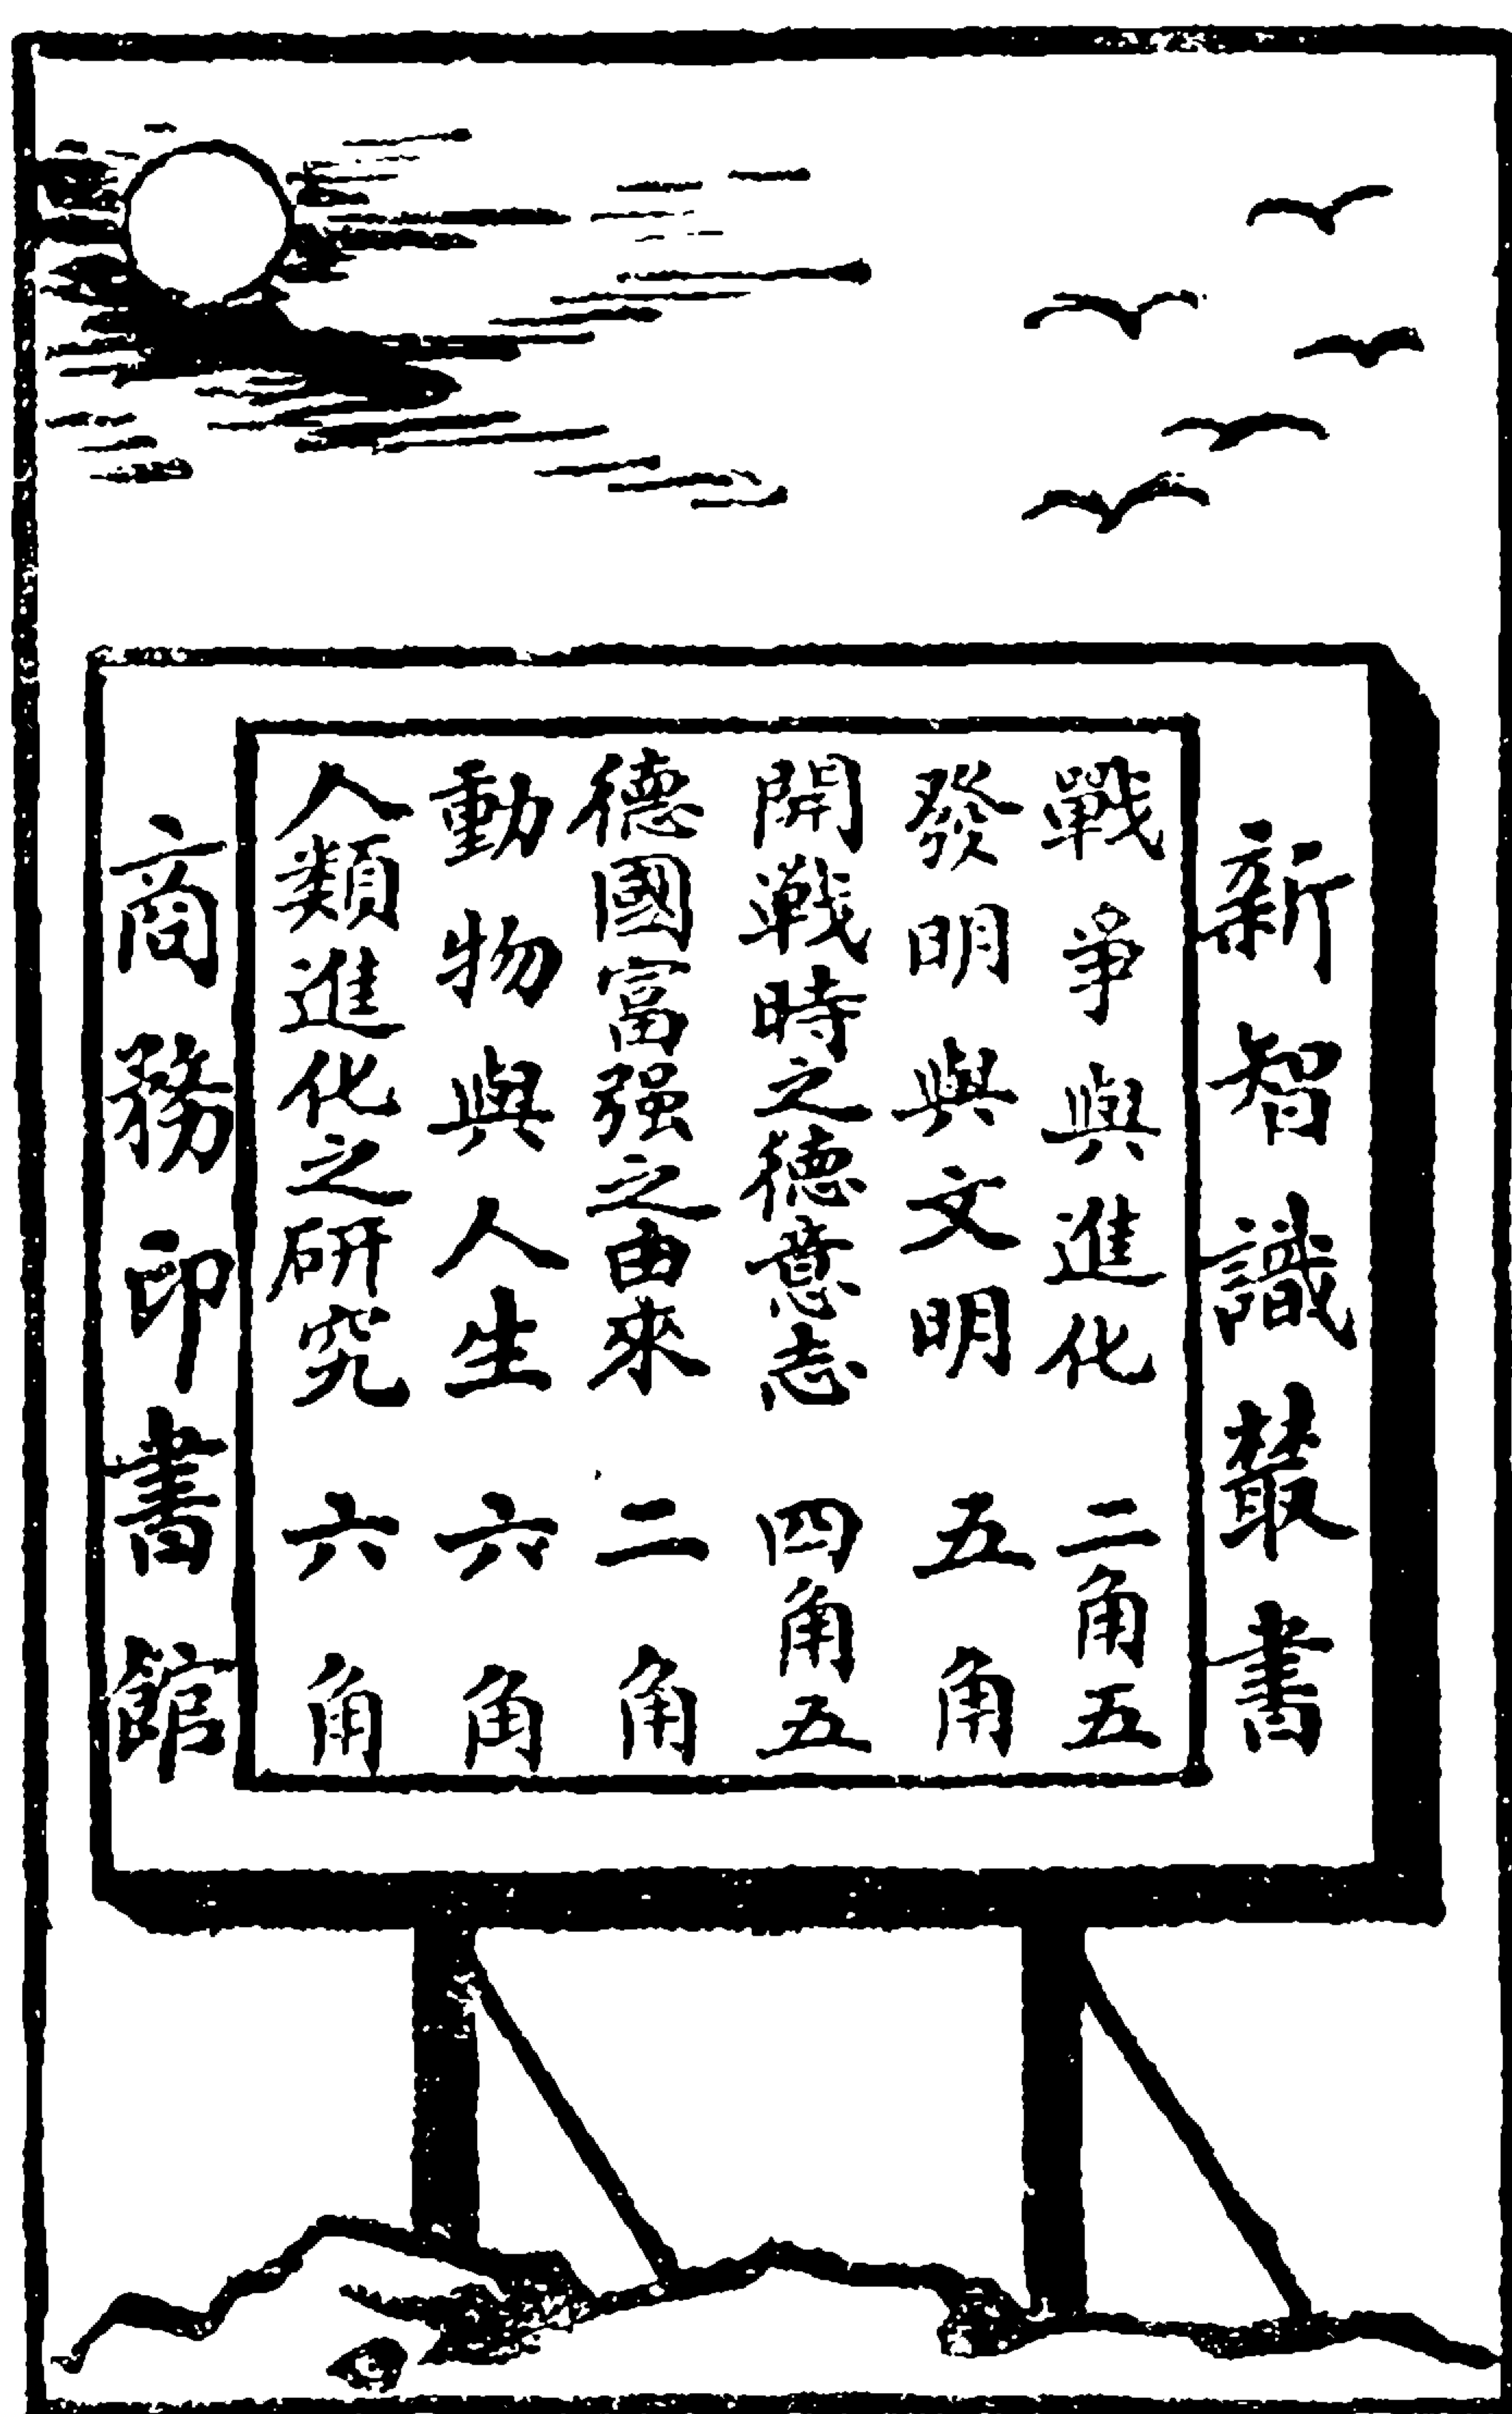 新智識叢書
戰爭與進化 二角五
發明與文明 五角
開戰時之德意志 四角五
德國富强之由來 二角
動物與人生 六角
人類進化之研究 六角
商務印書館